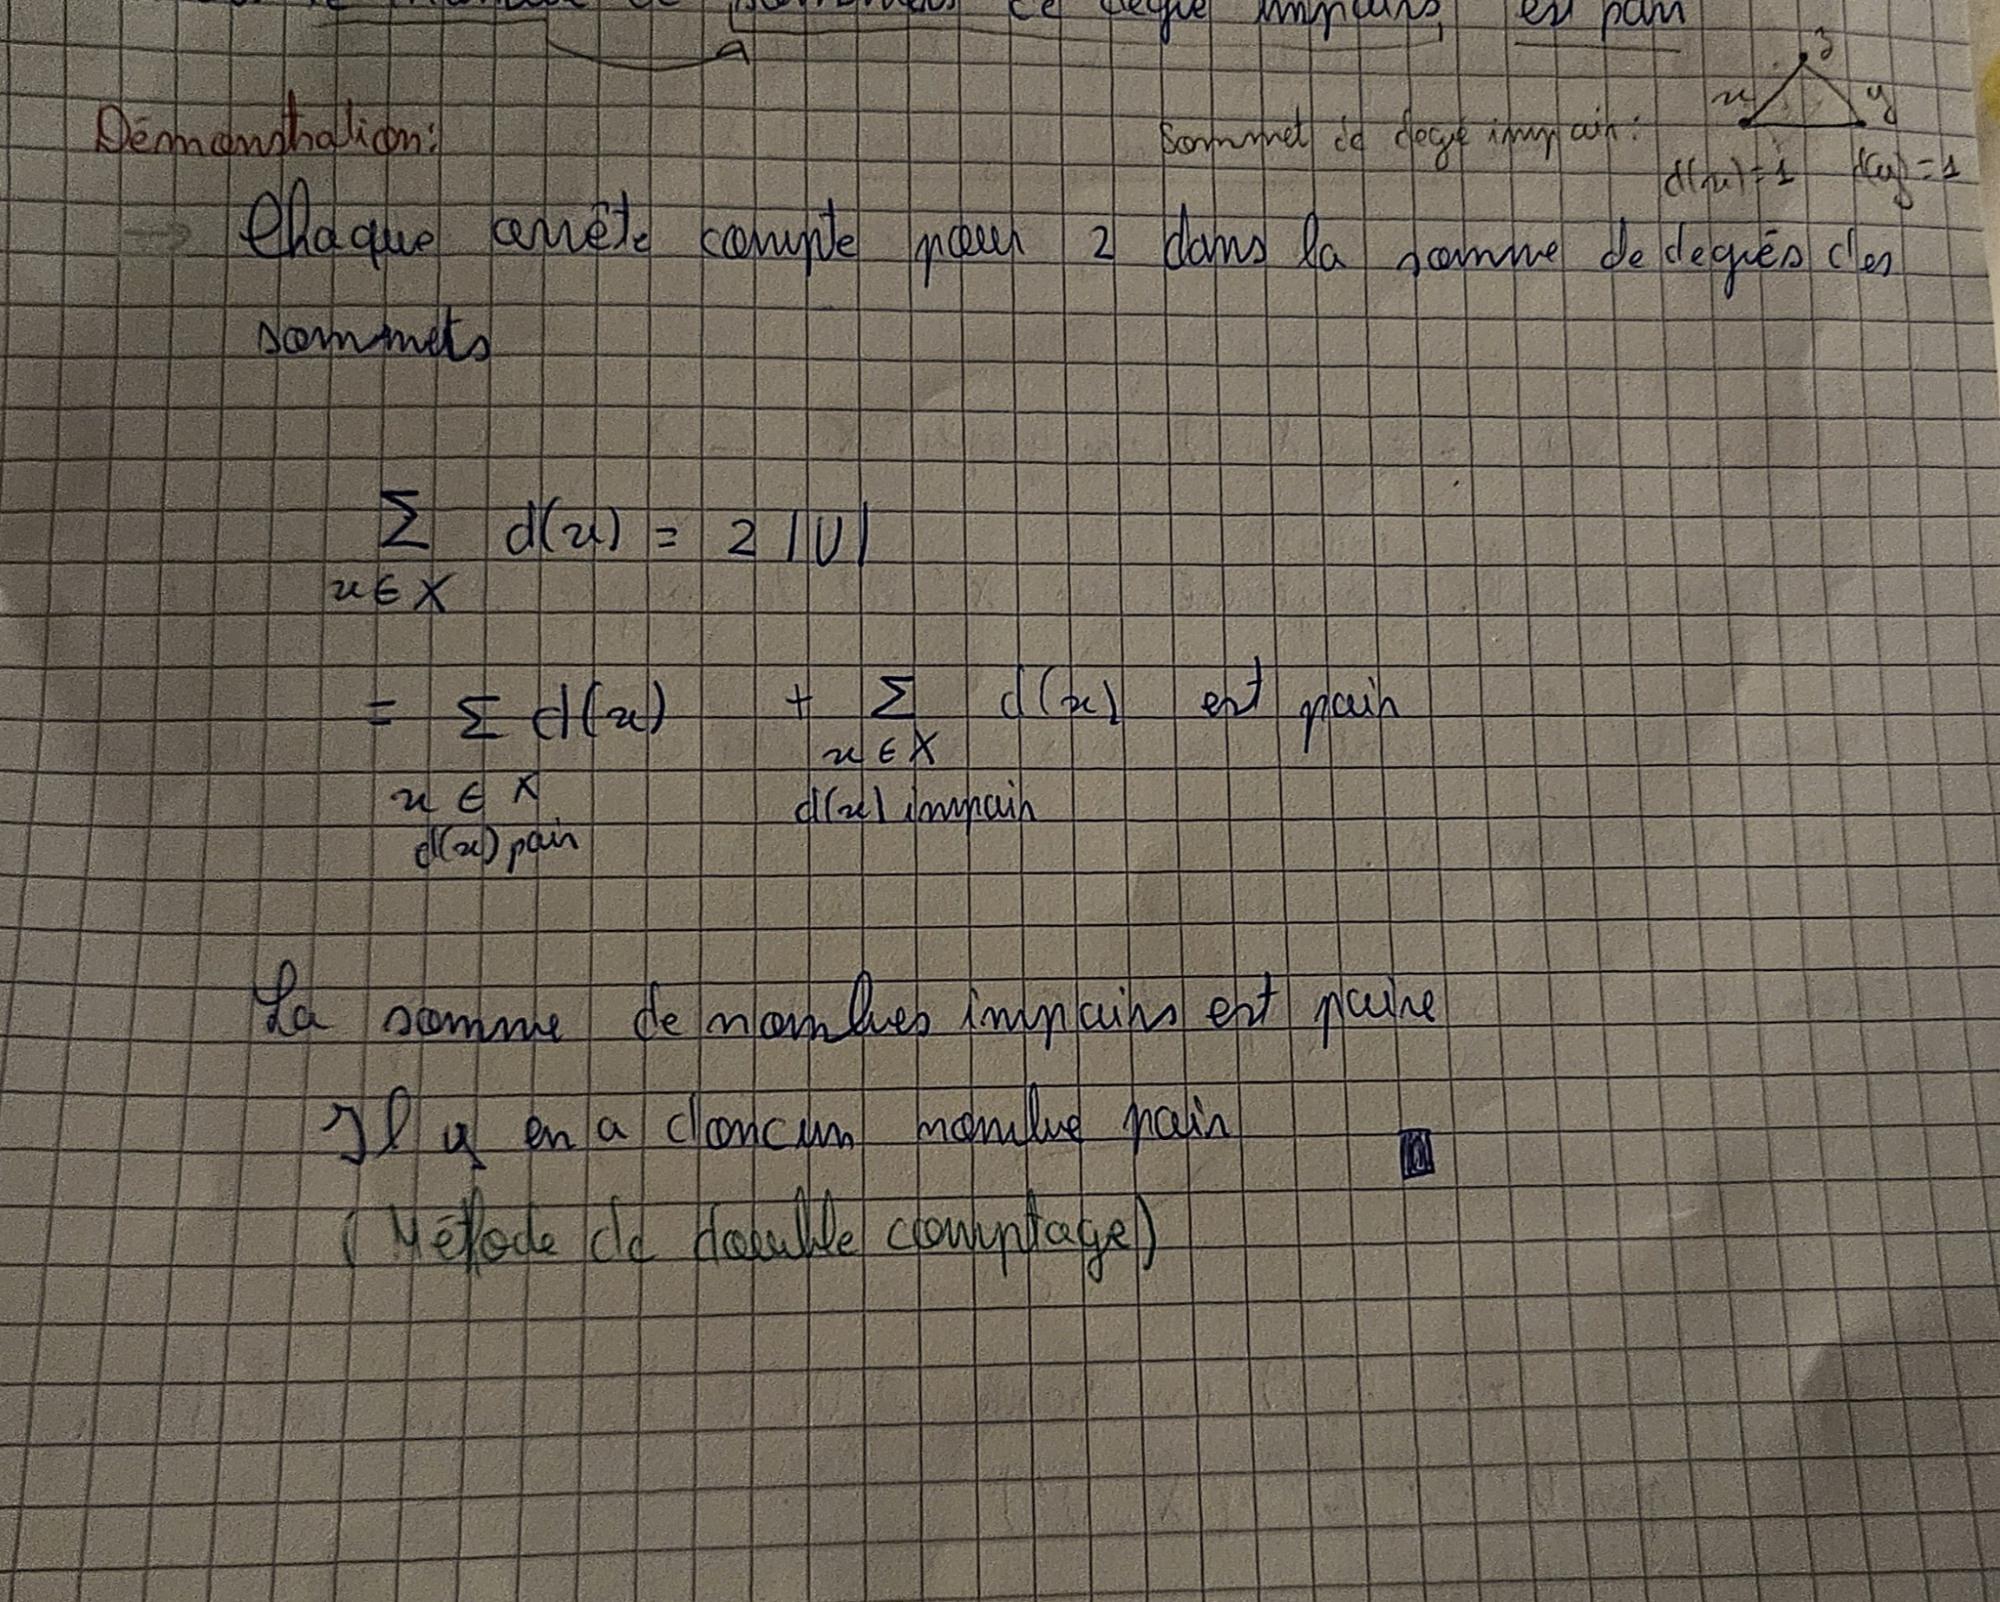 de degré impairs, est pair
z
x y
Démonstration:
Sommet de degé impair:
d(x)=1 d(y)=1
→ Chaque arrête compte pour 2 dans la somme de degrés des
sommets
Σ d(x) = 2 |U|
x ∈ X
= Σ d(x) + Σ d(x) est pair
x ∈ X x ∈ X
d(x) pair d(x) impair
La somme de nombres impairs est paire
Il y en a donc un nombre pair
(Métode de double comptage)